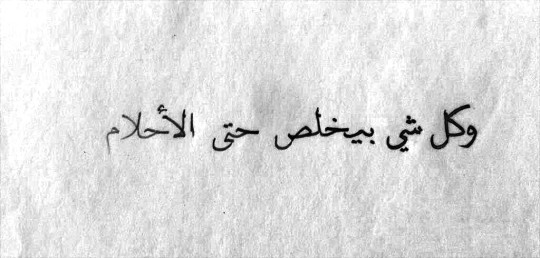 وكل شي بيخلص حتى الأحلام